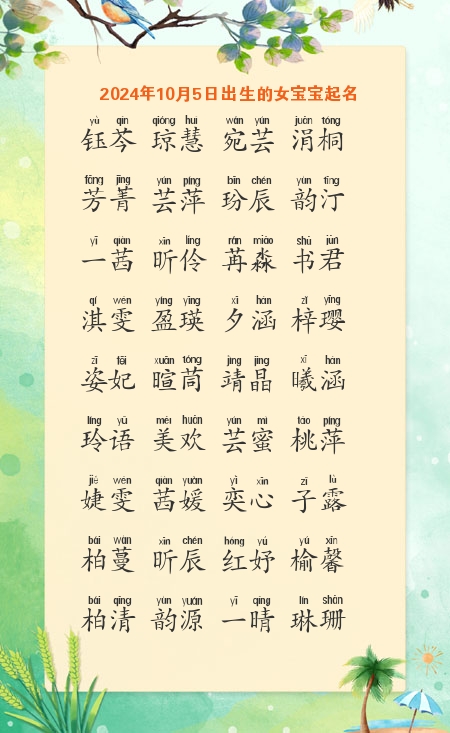 2024年10月5日出生的女宝宝起名
yù qín qióng huì wǎn yún juān tóng
钰芩 琼慧 宛芸 涓桐
fāng jīng yún píng bīn chén yùn tīng
芳菁 芸萍 玢辰 韵汀
yī qiàn xīn líng rǎn miǎo shū jūn
一茜 昕伶 苒淼 书君
qí wén yíng yīng xī hán zǐ yīng
淇雯 盈瑛 夕涵 梓璎
zī fēi xuān tóng jìng jīng xī hán
姿妃 暄茼 靖晶 曦涵
líng yǔ měi huān yún mì táo píng
玲语 美欢 芸蜜 桃萍
jié wén qiàn yuán yì xīn zǐ lù
婕雯 茜媛 奕心 子露
bǎi wàn xīn chén hóng yú yú xīn
柏蔓 昕辰 红妤 榆馨
bǎi qīng yùn yuán yī qíng lín shān
柏清 韵源 一晴 琳珊